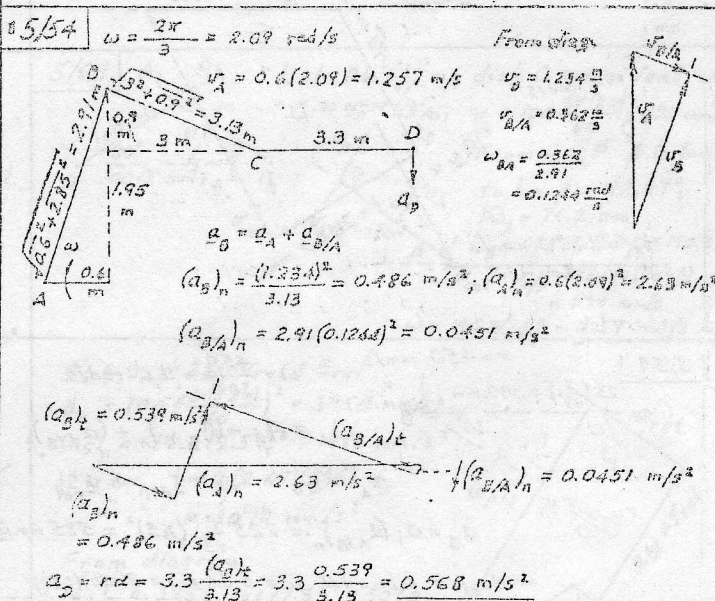 5/54 ω = 2π/3 = 2.09 rad/s
v_A = 0.6(2.09) = 1.257 m/s
From diag
v_B = 1.234 m/s
v_B/A = 0.362 m/s
ω_BA = 0.362/2.91
= 0.1244 rad/s
v_B/A
v_A
v_B
B
√3² + 0.9² = 3.13 m
√0.6² + 2.85² = 2.91
0.9 m
3 m
C
3.3 m
D
a_D
1.95 m
ω
0.6 m
A
a_B = a_A + a_B/A
(a_B)n = (1.234)²/3.13 = 0.486 m/s²; (a_A)n = 0.6(2.09)² = 2.63 m/s²
(a_B/A)n = 2.91(0.1244)² = 0.0451 m/s²
(a_B)t = 0.539 m/s²
(a_B/A)t
(a_A)n = 2.63 m/s²
(a_B/A)n = 0.0451 m/s²
(a_B)n
= 0.486 m/s²
a_D = rα = 3.3 (a_B)t/3.13 = 3.3 0.539/3.13 = 0.568 m/s²